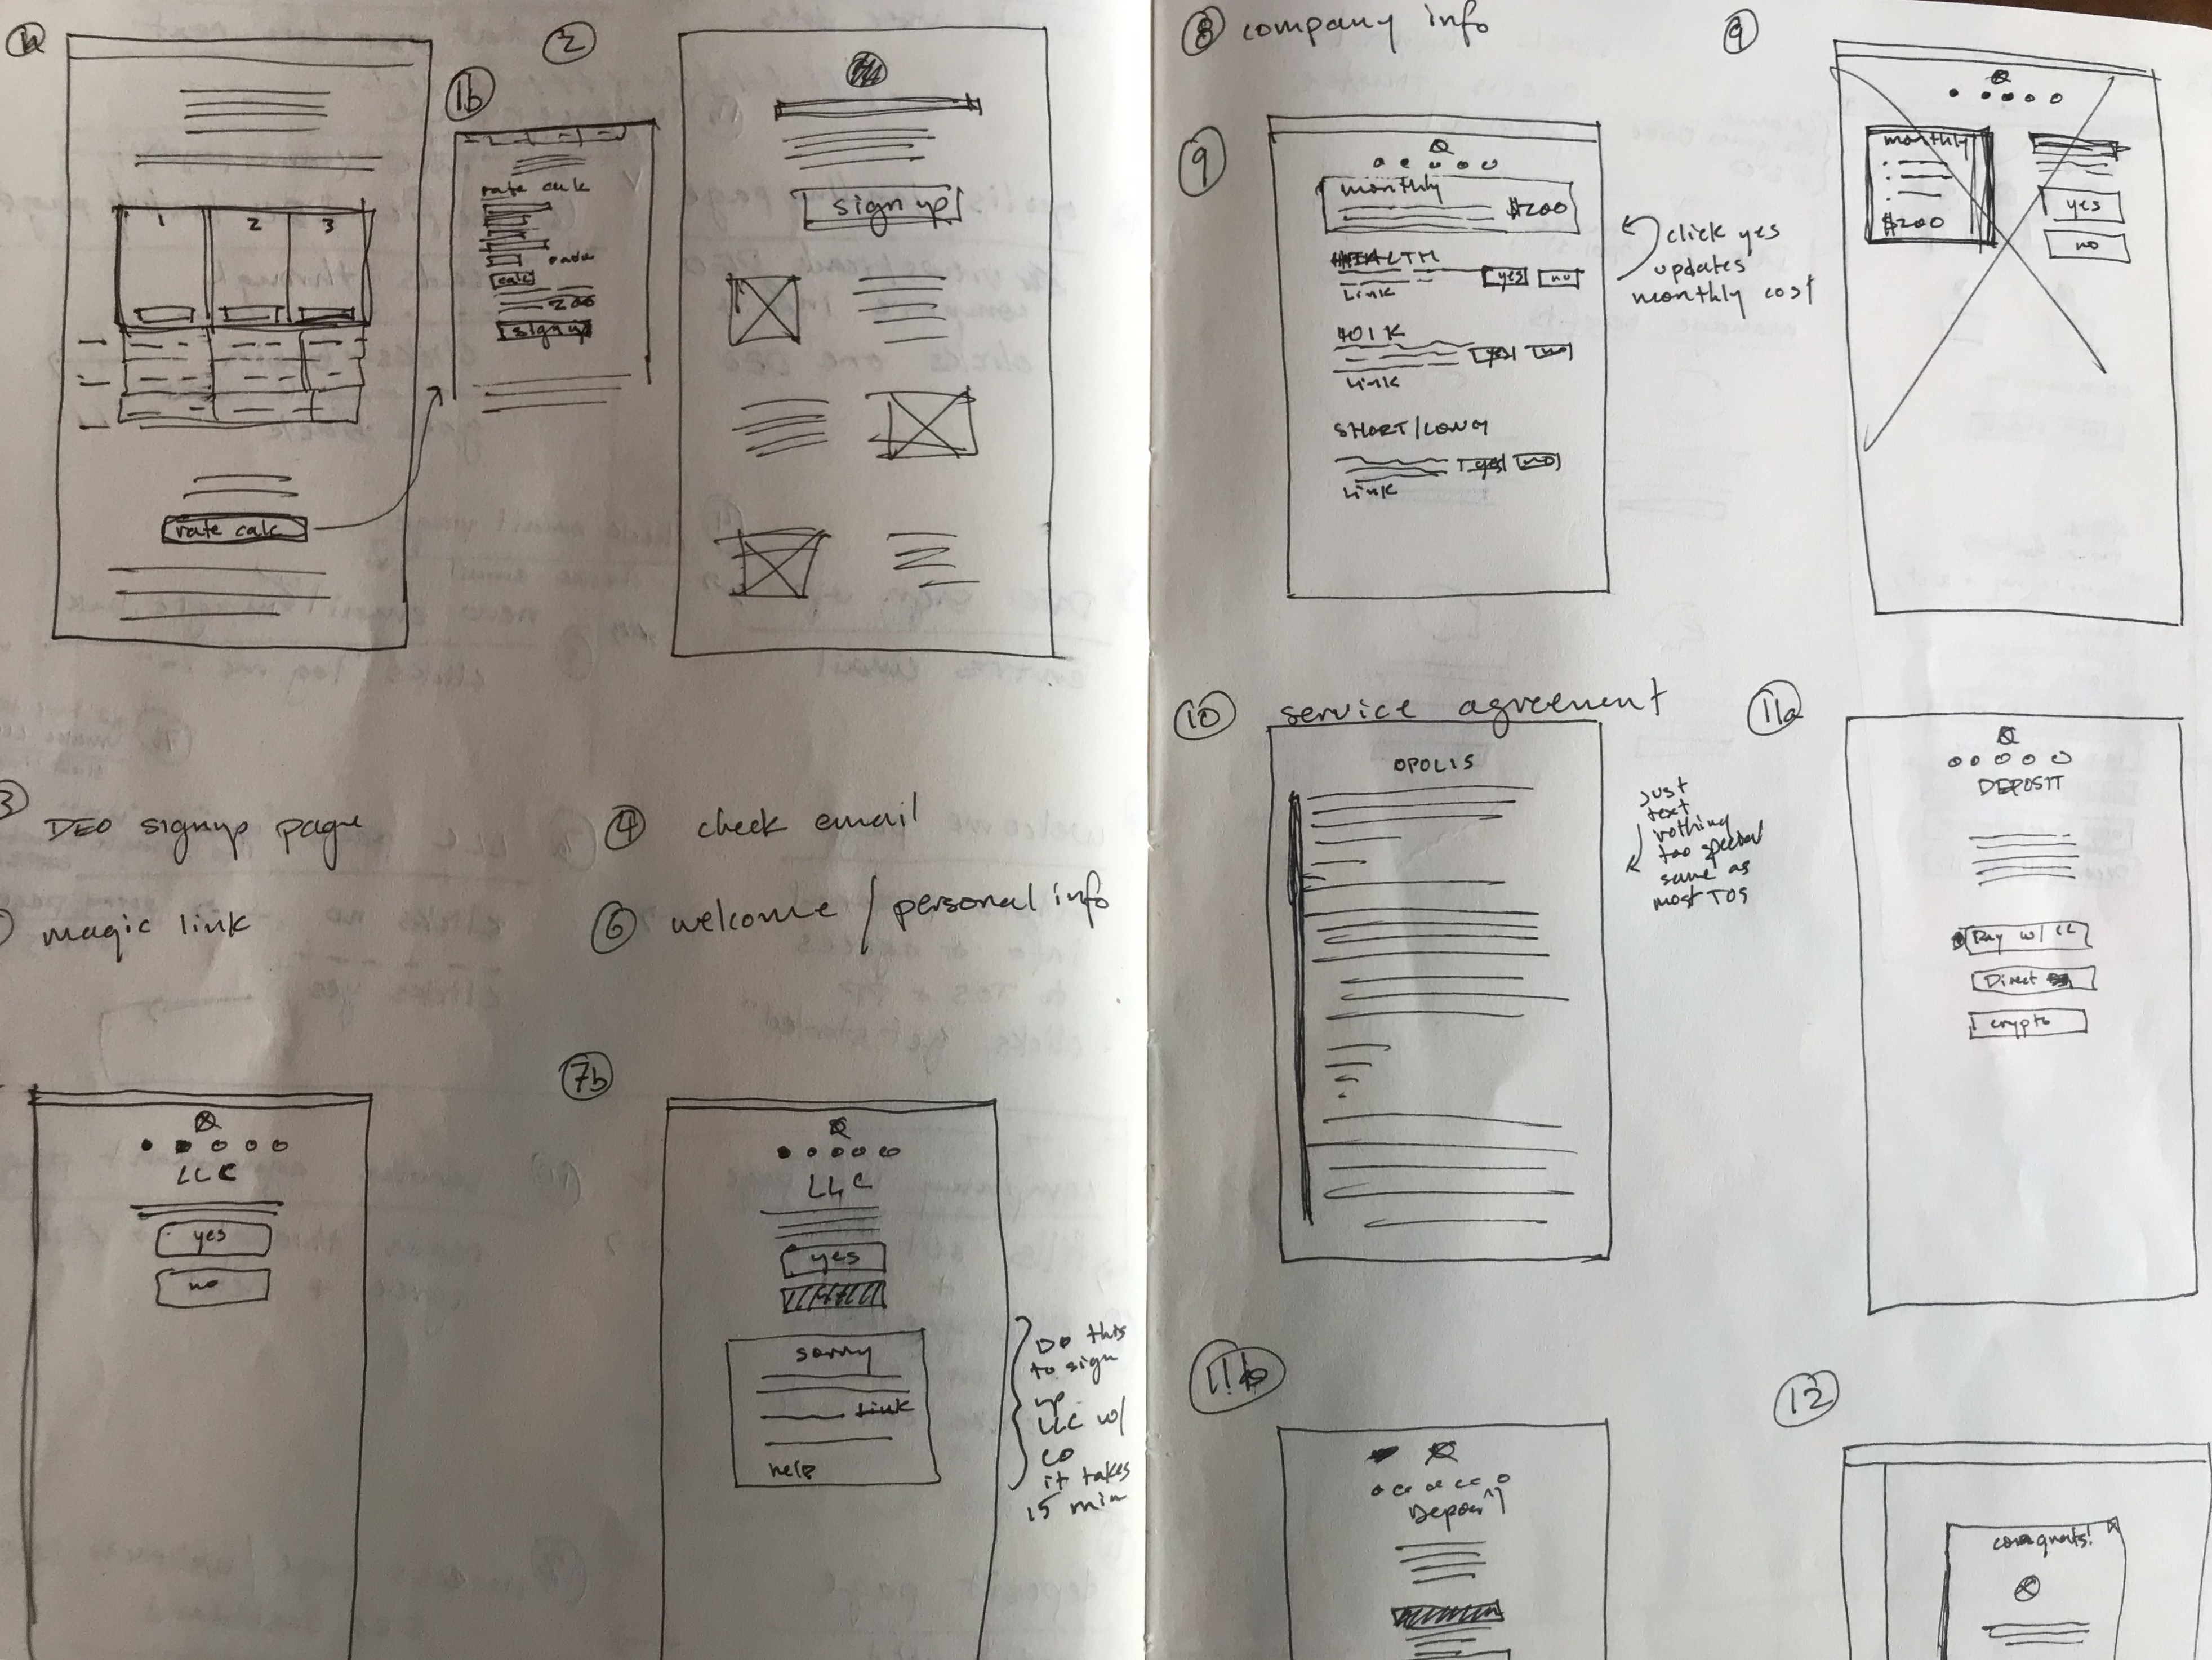 1a
1
2
3
rate calc
1b
rate calc
calc
200
sign up
2
sign up
3
DEO signup page
4
check email
magic link
6
welcome / personal info
LLC
yes
no
7b
LLC
yes
sorry
link
help
Do this
to sign
up
LLC w/
CO
it takes
15 min
8
company info
9
monthly
$200
HEALTH
yes
no
Link
401K
yes
no
Link
SHORT/LONG
yes
no
Link
click yes
updates
monthly cost
9
monthly
$200
yes
no
10
service agreement
OPOLIS
just
text
nothing
too special
same as
most TOS
11a
DEPOSIT
Pay w/ CC
Direct
crypto
11b
Deposit
12
congrats!